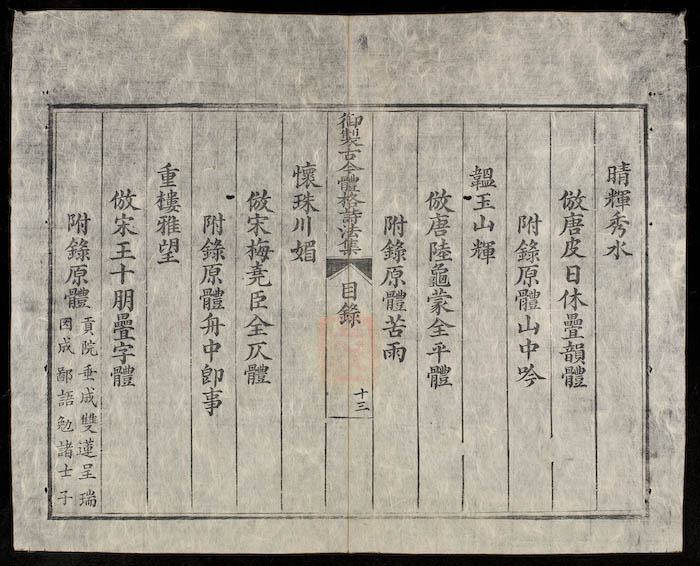 晴輝秀水
倣唐皮日休疊韻體
附錄原體山中吟
韞玉山輝
倣唐陸龜蒙全平體
附錄原體苦雨
御製古今體格詩法集
目錄
十三
懷珠川媚
倣宋梅堯臣全仄體
附錄原體舟中卽事
重樓雅望
倣宋王十朋疊字體
附錄原體貢院垂成雙蓮呈瑞
因成鄙語勉諸士子